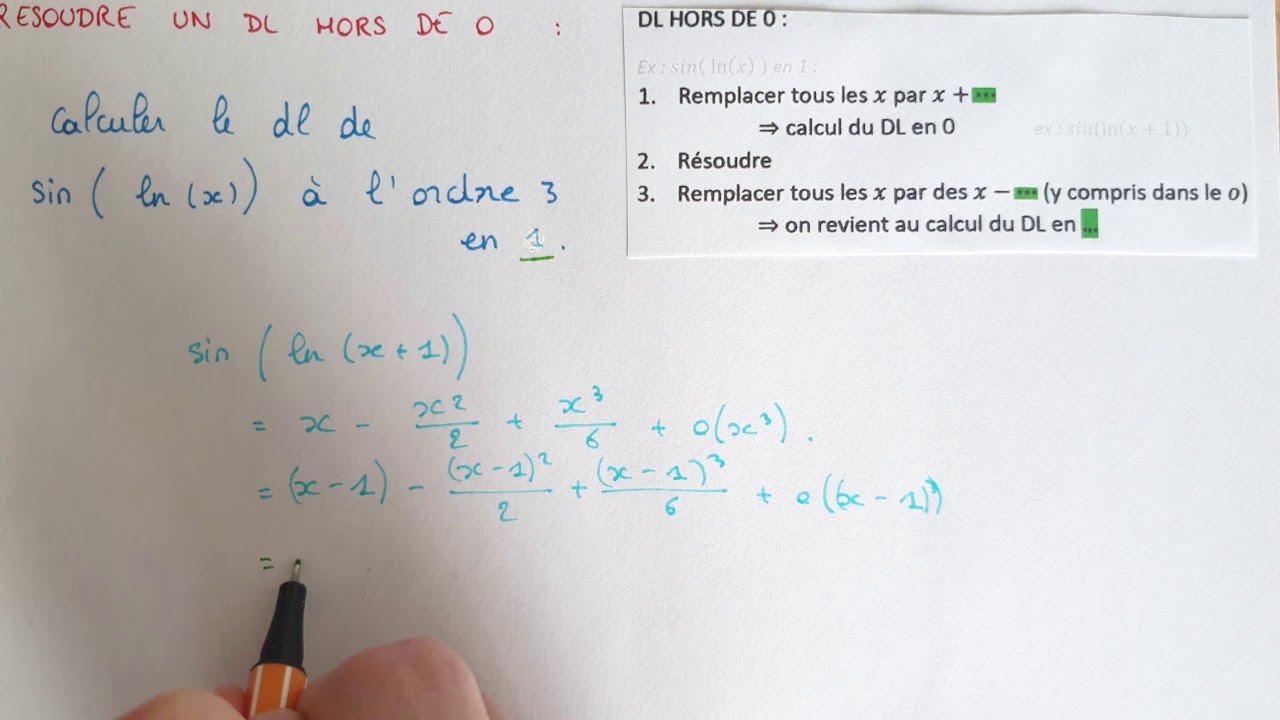 RESOUDRE UN DL HORS DE 0 :
calculer le dl de
sin ( ln (x)) à l'ordre 3
en 1.
DL HORS DE 0 :
Ex : sin( ln(x) ) en 1 :
1. Remplacer tous les x par x + ...
⇒ calcul du DL en 0 ex : sin(ln(x + 1))
2. Résoudre
3. Remplacer tous les x par des x − ... (y compris dans le o)
⇒ on revient au calcul du DL en ...
sin ( ln (x + 1))
= x - x²/2 + x³/6 + o(x³).
= (x - 1) - (x - 1)²/2 + (x - 1)³/6 + o((x - 1)³)
=